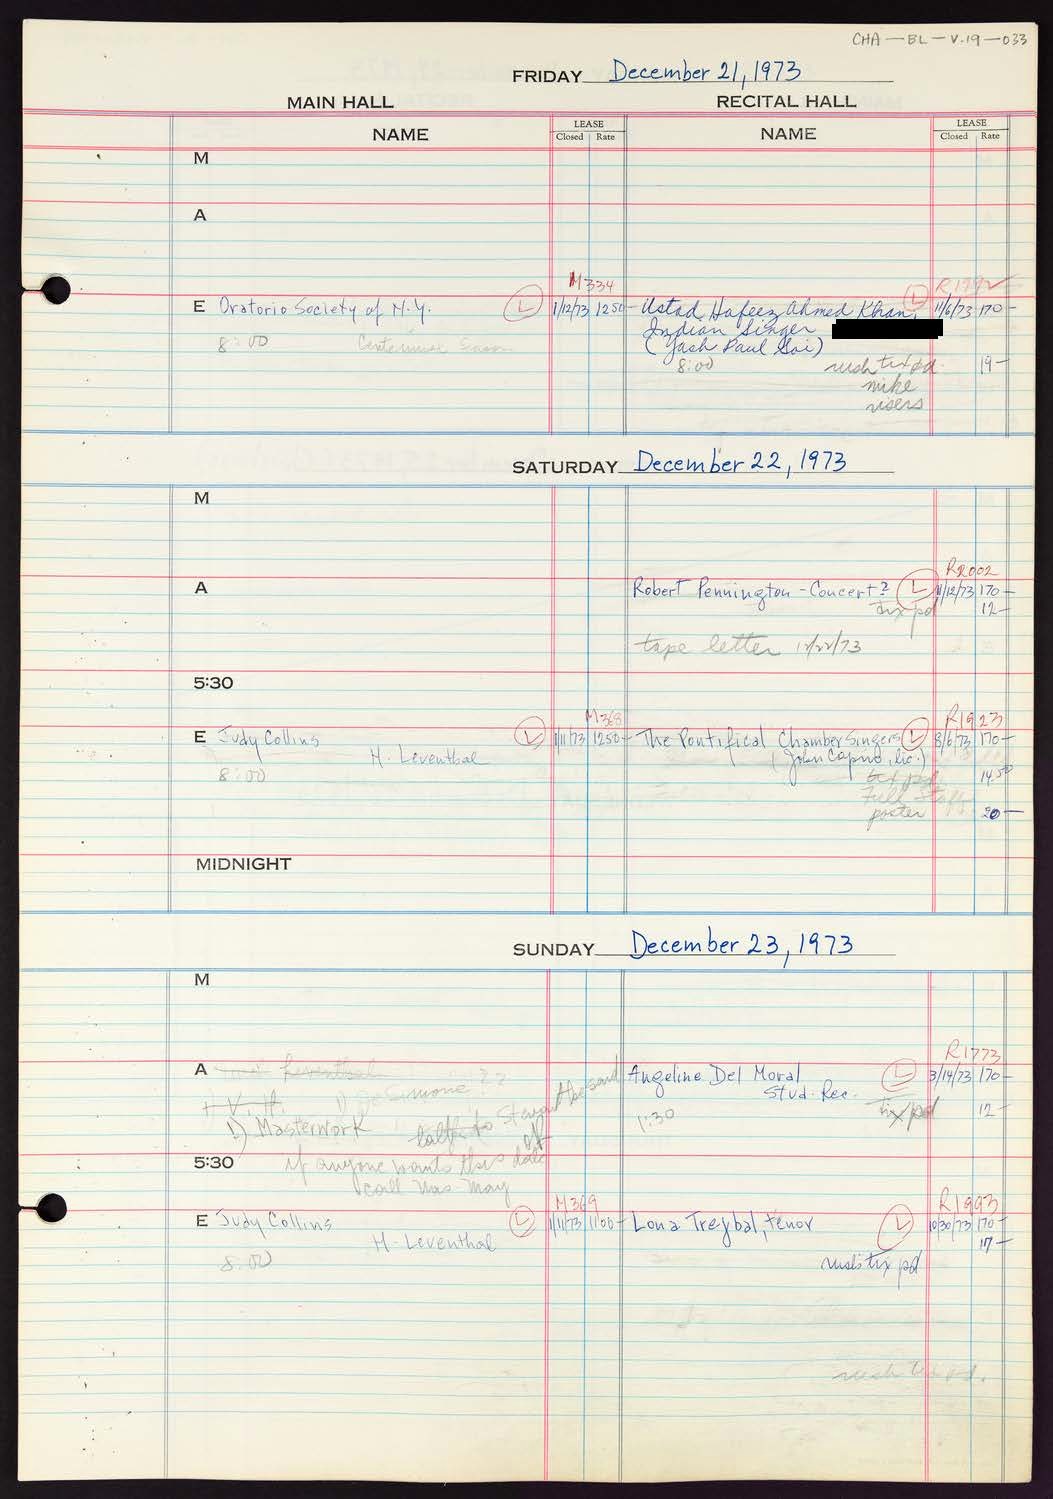 CHA-BL-V.19-033
FRIDAY December 21, 1973
MAIN HALL RECITAL HALL
NAME LEASE Closed Rate NAME LEASE Closed Rate
M
A
M334
E Oratorio Society of N.Y. L 1/12/73 1250- Ustad Hafeez Ahmed Khan, L 11/6/73 170-
Indian Singer
8:00 Centennial Season (Yash Paul Soi)
8:00 rush tix pd. 19-
mike
risers
SATURDAY December 22, 1973
M
R2002
A Robert Pennington - Concert? L 11/12/73 170-
tix pd 12-
tape letter 12/22/73
5:30
M368 R1923
E Judy Collins L 1/11/73 1250- The Pontifical Chamber Singers L 8/6/73 170-
H. Leventhal (John Caprio, Inc.)
8:00 tix pd. 14.50
Full Staff
poster 20-
MIDNIGHT
SUNDAY December 23, 1973
M
R1773
A Leventhal Angeline Del Moral L 3/14/73 170-
Stud. Rec.
+ V.H. D DeSimone ?? 1:30 tix pd 12-
1) Masterwork talk to Stewart he said
5:30 if anyone wants this date
call Mrs. May
M369 R1993
E Judy Collins L 1/11/73 1100- Lona Treybal, tenor L 10/30/73 170-
H. Leventhal 17-
8:00 rush tix pd
rush tix pd.